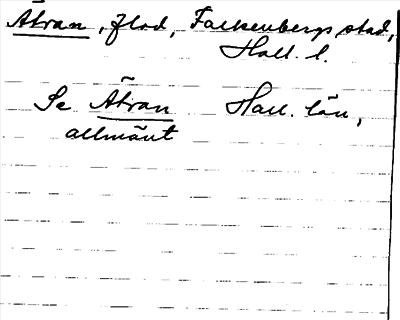 Ätran, flod, Falkenbergs stad,
Hall. l.
Se Ätran Hall. län,
allmänt